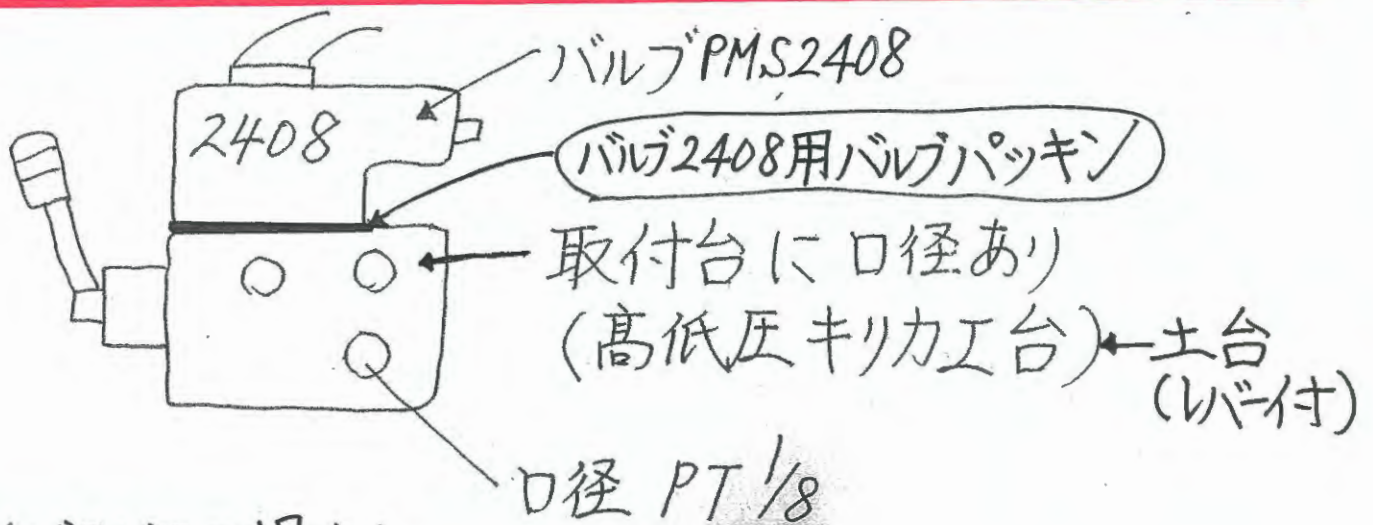 バルブPMS2408
2408
バルブ2408用バルブパッキン
取付台に口径あり
(高低圧キリカエ台)←土台
(レバー付)
口径 PT 1/8